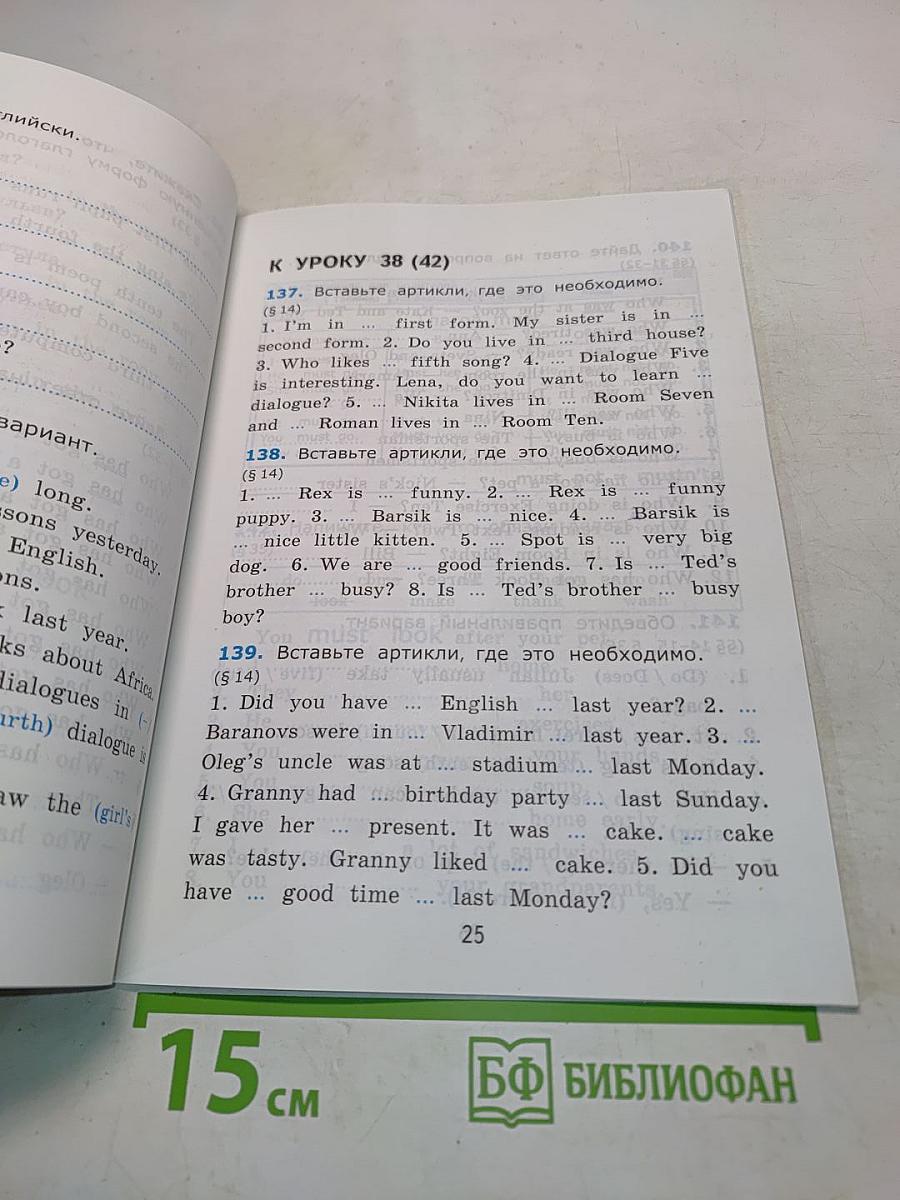 глийски.
?
вариант.
e) long.
ssons yesterday.
English.
ons.
last year.
ks about Africa.
dialogues in (-
urth) dialogue is
aw the (girl's
К УРОКУ 38 (42)
137. Вставьте артикли, где это необходимо.
(§ 14)
1. I'm in ... first form. My sister is in ...
second form. 2. Do you live in ... third house?
3. Who likes ... fifth song? 4. ... Dialogue Five
is interesting. Lena, do you want to learn ...
dialogue? 5. ... Nikita lives in ... Room Seven
and ... Roman lives in ... Room Ten.
138. Вставьте артикли, где это необходимо.
(§ 14)
1. ... Rex is ... funny. 2. ... Rex is ... funny
puppy. 3. ... Barsik is ... nice. 4. ... Barsik is
... nice little kitten. 5. ... Spot is ... very big
dog. 6. We are ... good friends. 7. Is ... Ted's
brother ... busy? 8. Is ... Ted's brother ... busy
boy?
139. Вставьте артикли, где это необходимо.
(§ 14)
1. Did you have ... English ... last year? 2. ...
Baranovs were in ... Vladimir ... last year. 3. ...
Oleg's uncle was at ... stadium ... last Monday.
4. Granny had ... birthday party ... last Sunday.
I gave her ... present. It was ... cake. ... cake
was tasty. Granny liked ... cake. 5. Did you
have ... good time ... last Monday?
25
15 см
БФ БИБЛИОФАН